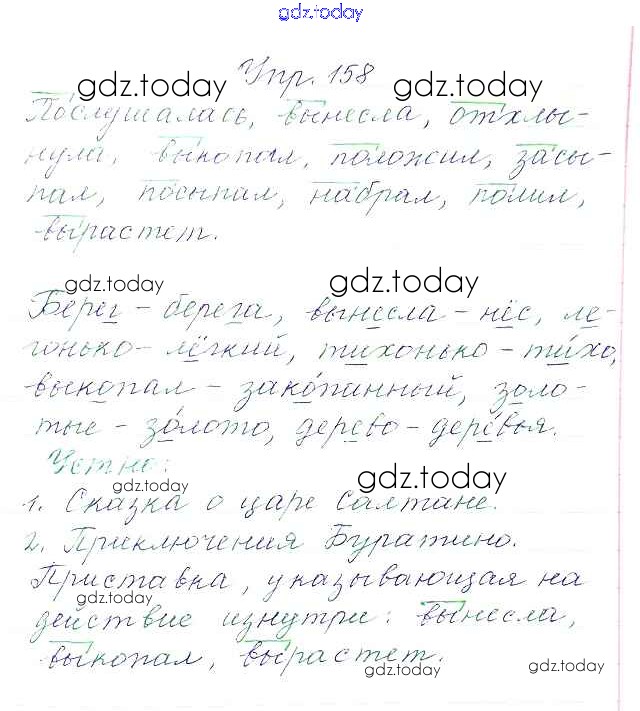 gdz.today
Упр. 158
gdz.today gdz.today
Послушалась, вынесла, отхлы-
нула, выкопал, положил, засы-
пал, посыпал, набрал, полил,
вырастет.
gdz.today gdz.today
Берег - берега, вынесла - нёс, ле-
гонько - лёгкий, тихонько - тихо,
выкопал - закопанный, золо-
тые - золото, дерево - деревья.
Устно:
gdz.today gdz.today
1. Сказка о царе Салтане.
2. Приключения Буратино.
Приставка, указывающая на
gdz.today
действие изнутри: вынесла,
выкопал, вырастет.
gdz.today gdz.today